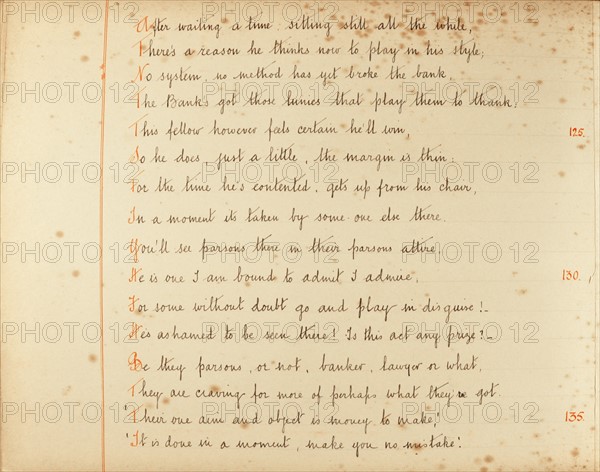 After waiting a time sitting still all the while,
There's a reason he thinks now to play in his style;
No system, no method has yet broke the bank,
The Bank's got those that play them to thank.
This fellow however feels certain he'll win, 125.
So he does, just a little, the margin is thin;
For the time he's contented, gets up from his chair,
In a moment its taken by some one else there.
You'll see parsons there in their parsons attire,
He is one I am bound to admit I admire, 130.
For some without doubt go and play in disguise!_
He's ashamed to be seen there! Is this act any prize?_
Be they parsons, or not, banker, lawyer or what,
They are craving for more of perhaps what they've got
'Their one aim and object is money to make,' 135.
'It is done in a moment, make you no mistake'.